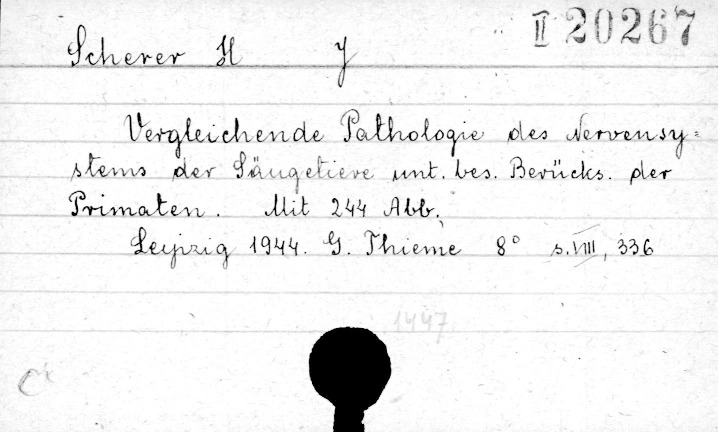 II 20267
Scherer H J
Vergleichende Pathologie des Nervensy=
stems der Säugetiere unt. bes. Berücks. der
Primaten. Mit 244 Abb.
Leipzig 1944. G. Thieme 8° s. VIII, 336
1447